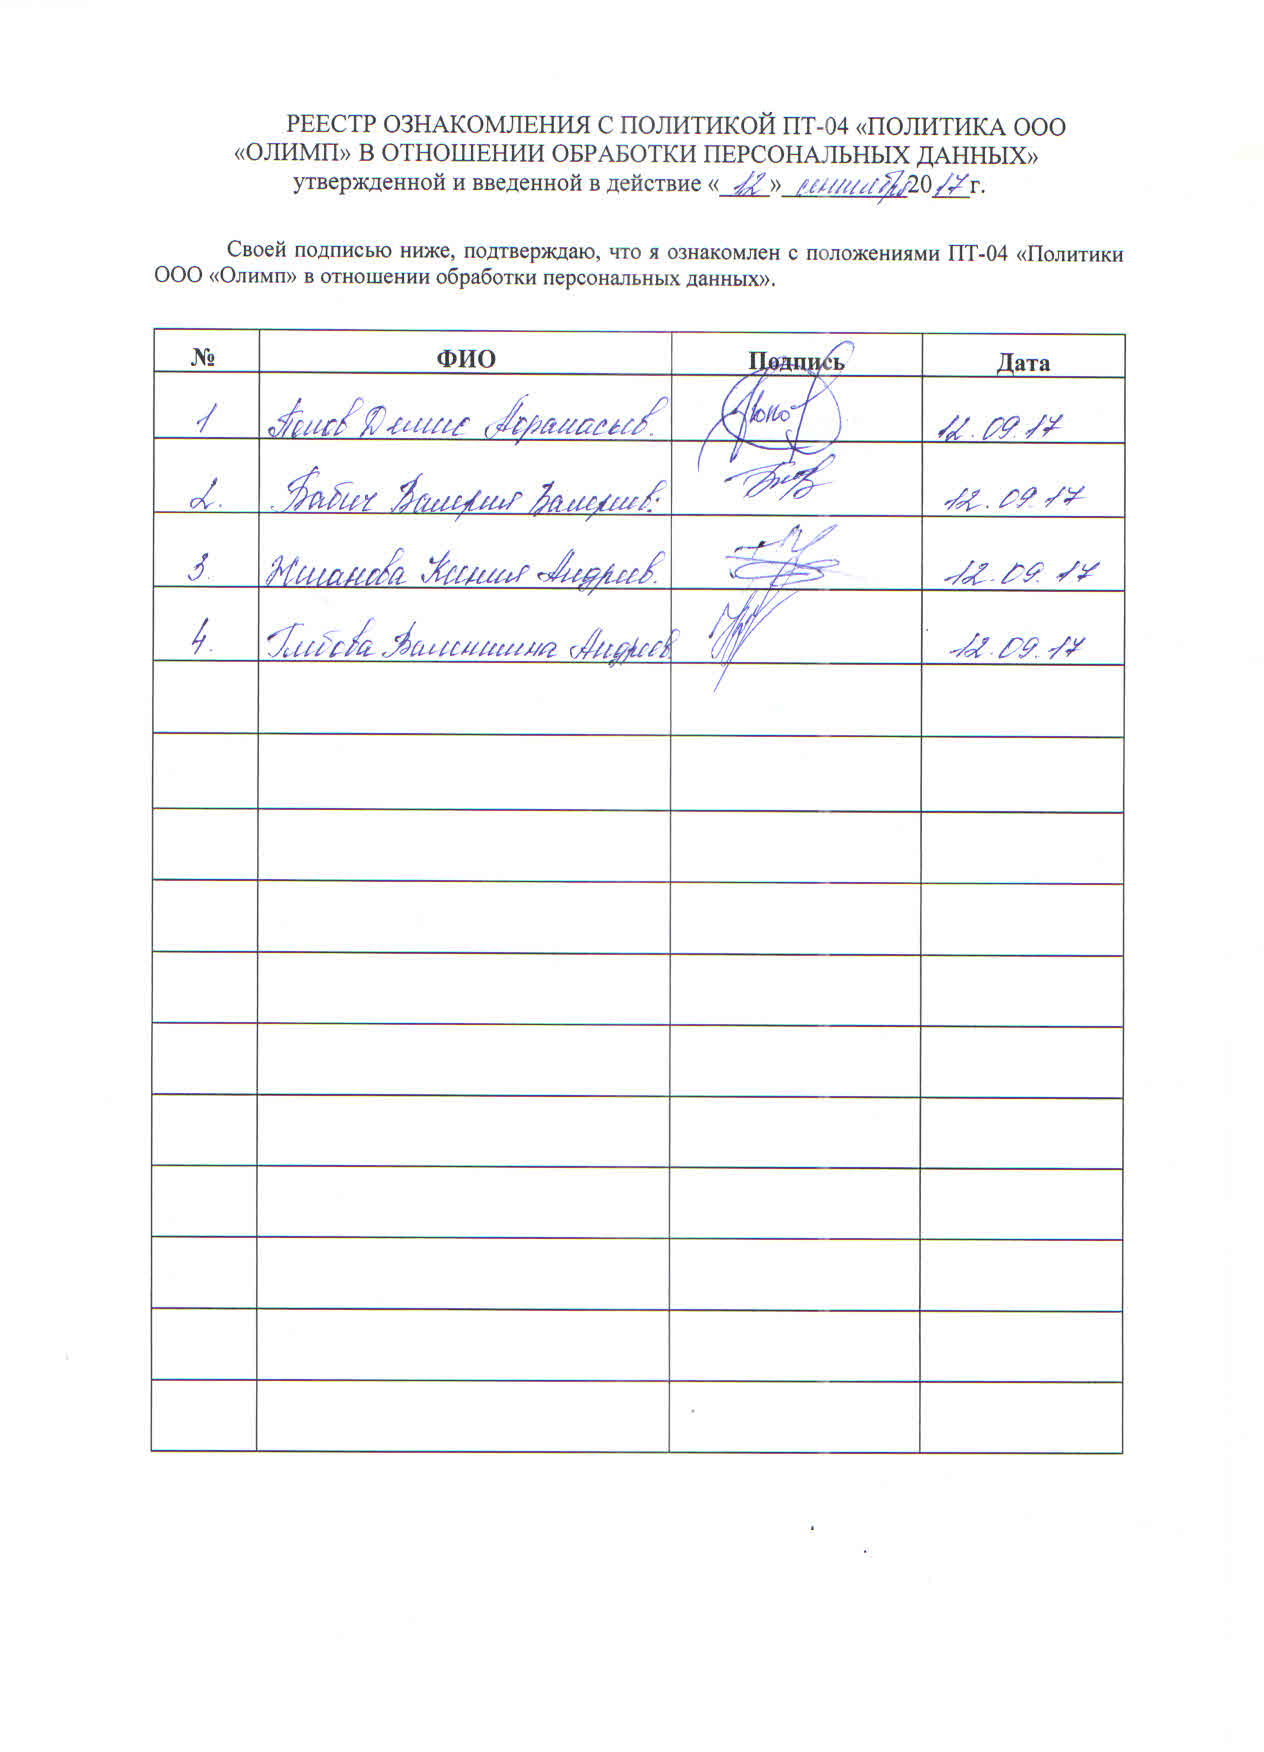 РЕЕСТР ОЗНАКОМЛЕНИЯ С ПОЛИТИКОЙ ПТ-04 «ПОЛИТИКА ООО
«ОЛИМП» В ОТНОШЕНИИ ОБРАБОТКИ ПЕРСОНАЛЬНЫХ ДАННЫХ»
утвержденной и введенной в действие «12» сентября 2017 г.
Своей подписью ниже, подтверждаю, что я ознакомлен с положениями ПТ-04 «Политики
ООО «Олимп» в отношении обработки персональных данных».
№ ФИО Подпись Дата
1 Попов Денис Афанасьев. 12.09.17
2. Бабич Валерия Валериев. 12.09.17
3. Ксения Андреев. 12.09.17
4. Глебова Валентина Андреев. 12.09.17